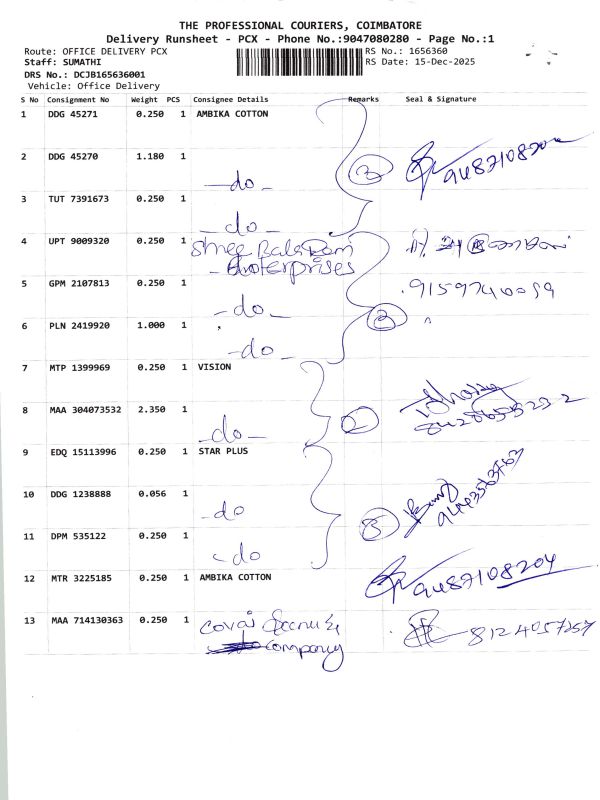 THE PROFESSIONAL COURIERS, COIMBATORE
Delivery Runsheet - PCX - Phone No.:9047080280 - Page No.:1
Route: OFFICE DELIVERY PCX RS No.: 1656360
Staff: SUMATHI RS Date: 15-Dec-2025
DRS No.: DCJB165636001
Vehicle: Office Delivery
S No Consignment No Weight PCS Consignee Details Remarks Seal & Signature
1 DDG 45271 0.250 1 AMBIKA COTTON
2 DDG 45270 1.180 1
-do- 3 9487108204
3 TUT 7391673 0.250 1
-do-
4 UPT 9009320 0.250 1 Shree Balaram
Enterprises
5 GPM 2107813 0.250 1 9159740059
-do- 3
6 PLN 2419920 1.000 1
-do-
7 MTP 1399969 0.250 1 VISION
8 MAA 304073532 2.350 1 2
-do-
9 EDQ 15113996 0.250 1 STAR PLUS
10 DDG 1238888 0.056 1
-do 3
11 DPM 535122 0.250 1
-do
12 MTR 3225185 0.250 1 AMBIKA COTTON 9487108204
13 MAA 714130363 0.250 1 Covai 8124057257
company